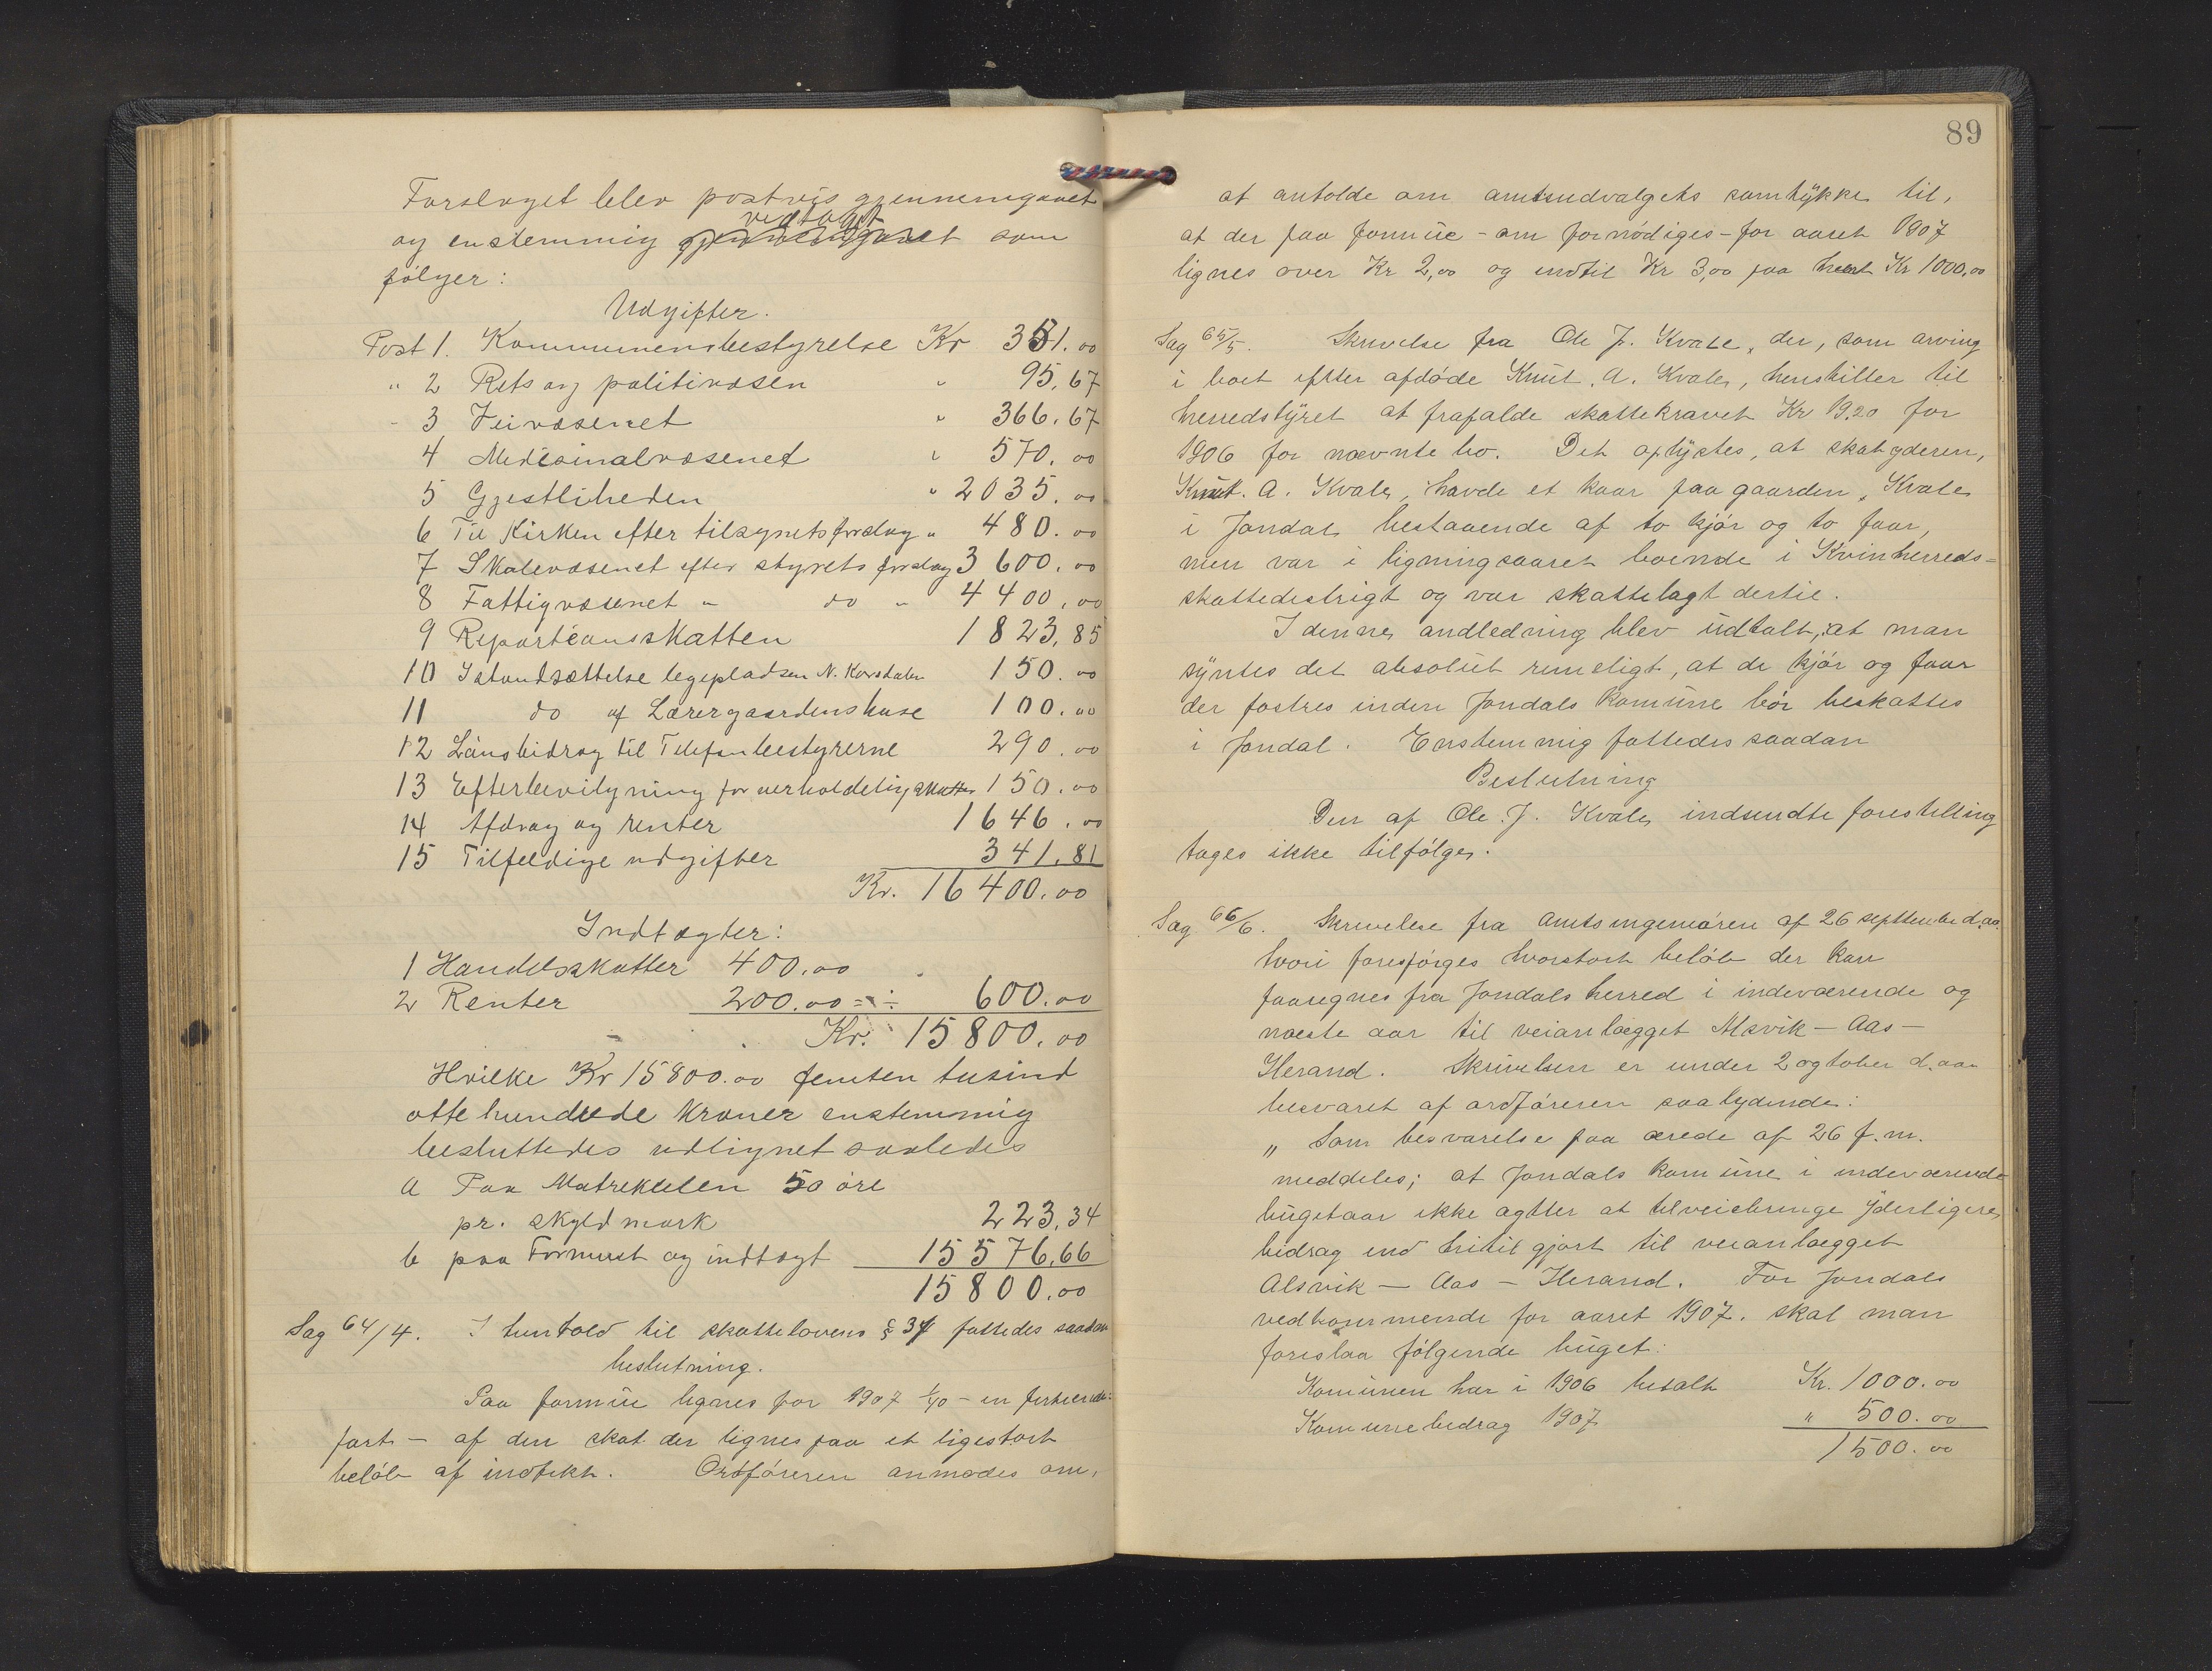 Forslaget blev postvis gjennemgaaet
vedtaget
og enstemmig gjennemgaaet som
følger:
Udgifter.
Post 1. Kommunensbestyrelse Kr 351.00
" 2 Rets og politivæsen " 95,67
- 3 Veivæsenet " 366.67
4 Medisinalvæsenet " 570.00
5 Gjestligheden " 2035.00
6 Til Kirken efter tilsynets forslag " 480.00
7 Skolevæsenet efter styrets forslag 3600.00
8 Fattigvæsenet " do " 4400,00
9 Repartisionsskatten 1823,85
10 Istandsættelse legepladsen N. Korsdalen 150.00
11 do af Lærergaardens huse 100.00
12 Lånsbidrag til Telefonbestyrerne 290.00
13 Efterbevilgning for uerholdelig skatter 150.00
14 Afdrag og renter 1646.00
15 Tilfeldige udgifter 341.81
Kr. 16400.00
Indtægter:
1 Handelsskatter 400.00
2 Renter 200.00 = ÷ 600.00
Kr. 15800.00
Hvilke Kr 15800.00 femten tusind
otte hundrede kroner enstemmig
besluttedes udlignet saaledes
a Paa Matrekulen 50 øre
pr. skyldmark 223,34
b paa Formuest og indtægt 15576,66
15800.00
Sag 64/4. I henhold til skattelovens § 37 fattedes saadan
beslutning.
Paa formue lignes for 1907 1/40 - en firtiende-
part - af den skat der lignes paa et ligestort
beløb af indtekt. Ordføreren anmodes om,
89
at anholde om amtsudvalgets samtykke til,
at der paa formue - om fornødiges - for aaret 1907
lignes over Kr 2,00 og indtil Kr 3,00 paa hvert Kr 1000,00
Sag 65/5. Skrivelse fra Ole J. Kvale, der, som arving
i boet efter afdøde Knut. A. Kvale, henstiller til
herredstyret at frafalde skattekravet Kr 19.20 for
1906 for nævnte bo. Det oplystes, at skatyderen,
Knut. A. Kvale, havde et kaar paa gaarden, Kvale
i Jondal bestaaende af to kjør og to faar,
men var i ligningsaaret boende i Kvinherreds-
skattedistrigt og var skattelagt dertil.
I dennes andledning blev udtalt, at man
syntes det absolut rimeligt, at de kjør og faar
der fostres inden Jondals Komune bør beskattes
i Jondal. Enstemmig fattedes saadan
Beslutning
Den af Ole. J. Kvale indsendte forestilling
tages ikke tilfølge.
Sag 66/6. Skrivelse fra Amtsingeniøren af 26 septtember d.aa.
hvori forespørges hvorstort beløb der kan
paaregnes fra Jondals herred i indeværende og
næste aar til veianlægget Alsvik - Aas -
Herand. Skrivelsen er under 2 ogtober d.aa.
besvaret af ordføreren saalydende:
„ Som besvarelse paa ærede af 26 f.m.
meddeles; at Jondals komune i indeværende
bugetaar ikke agtter at tilveiebringe yderligere
bidrag end hitil gjort til veianlægget
Alsvik - Aas - Herand. For Jondals
vedkommende for aaret 1907. skal man
foreslaa følgende buget:
Komunen har i 1906 betalt Kr. 1000.00
Komunebidrag 1907 " 500.00
1500.00